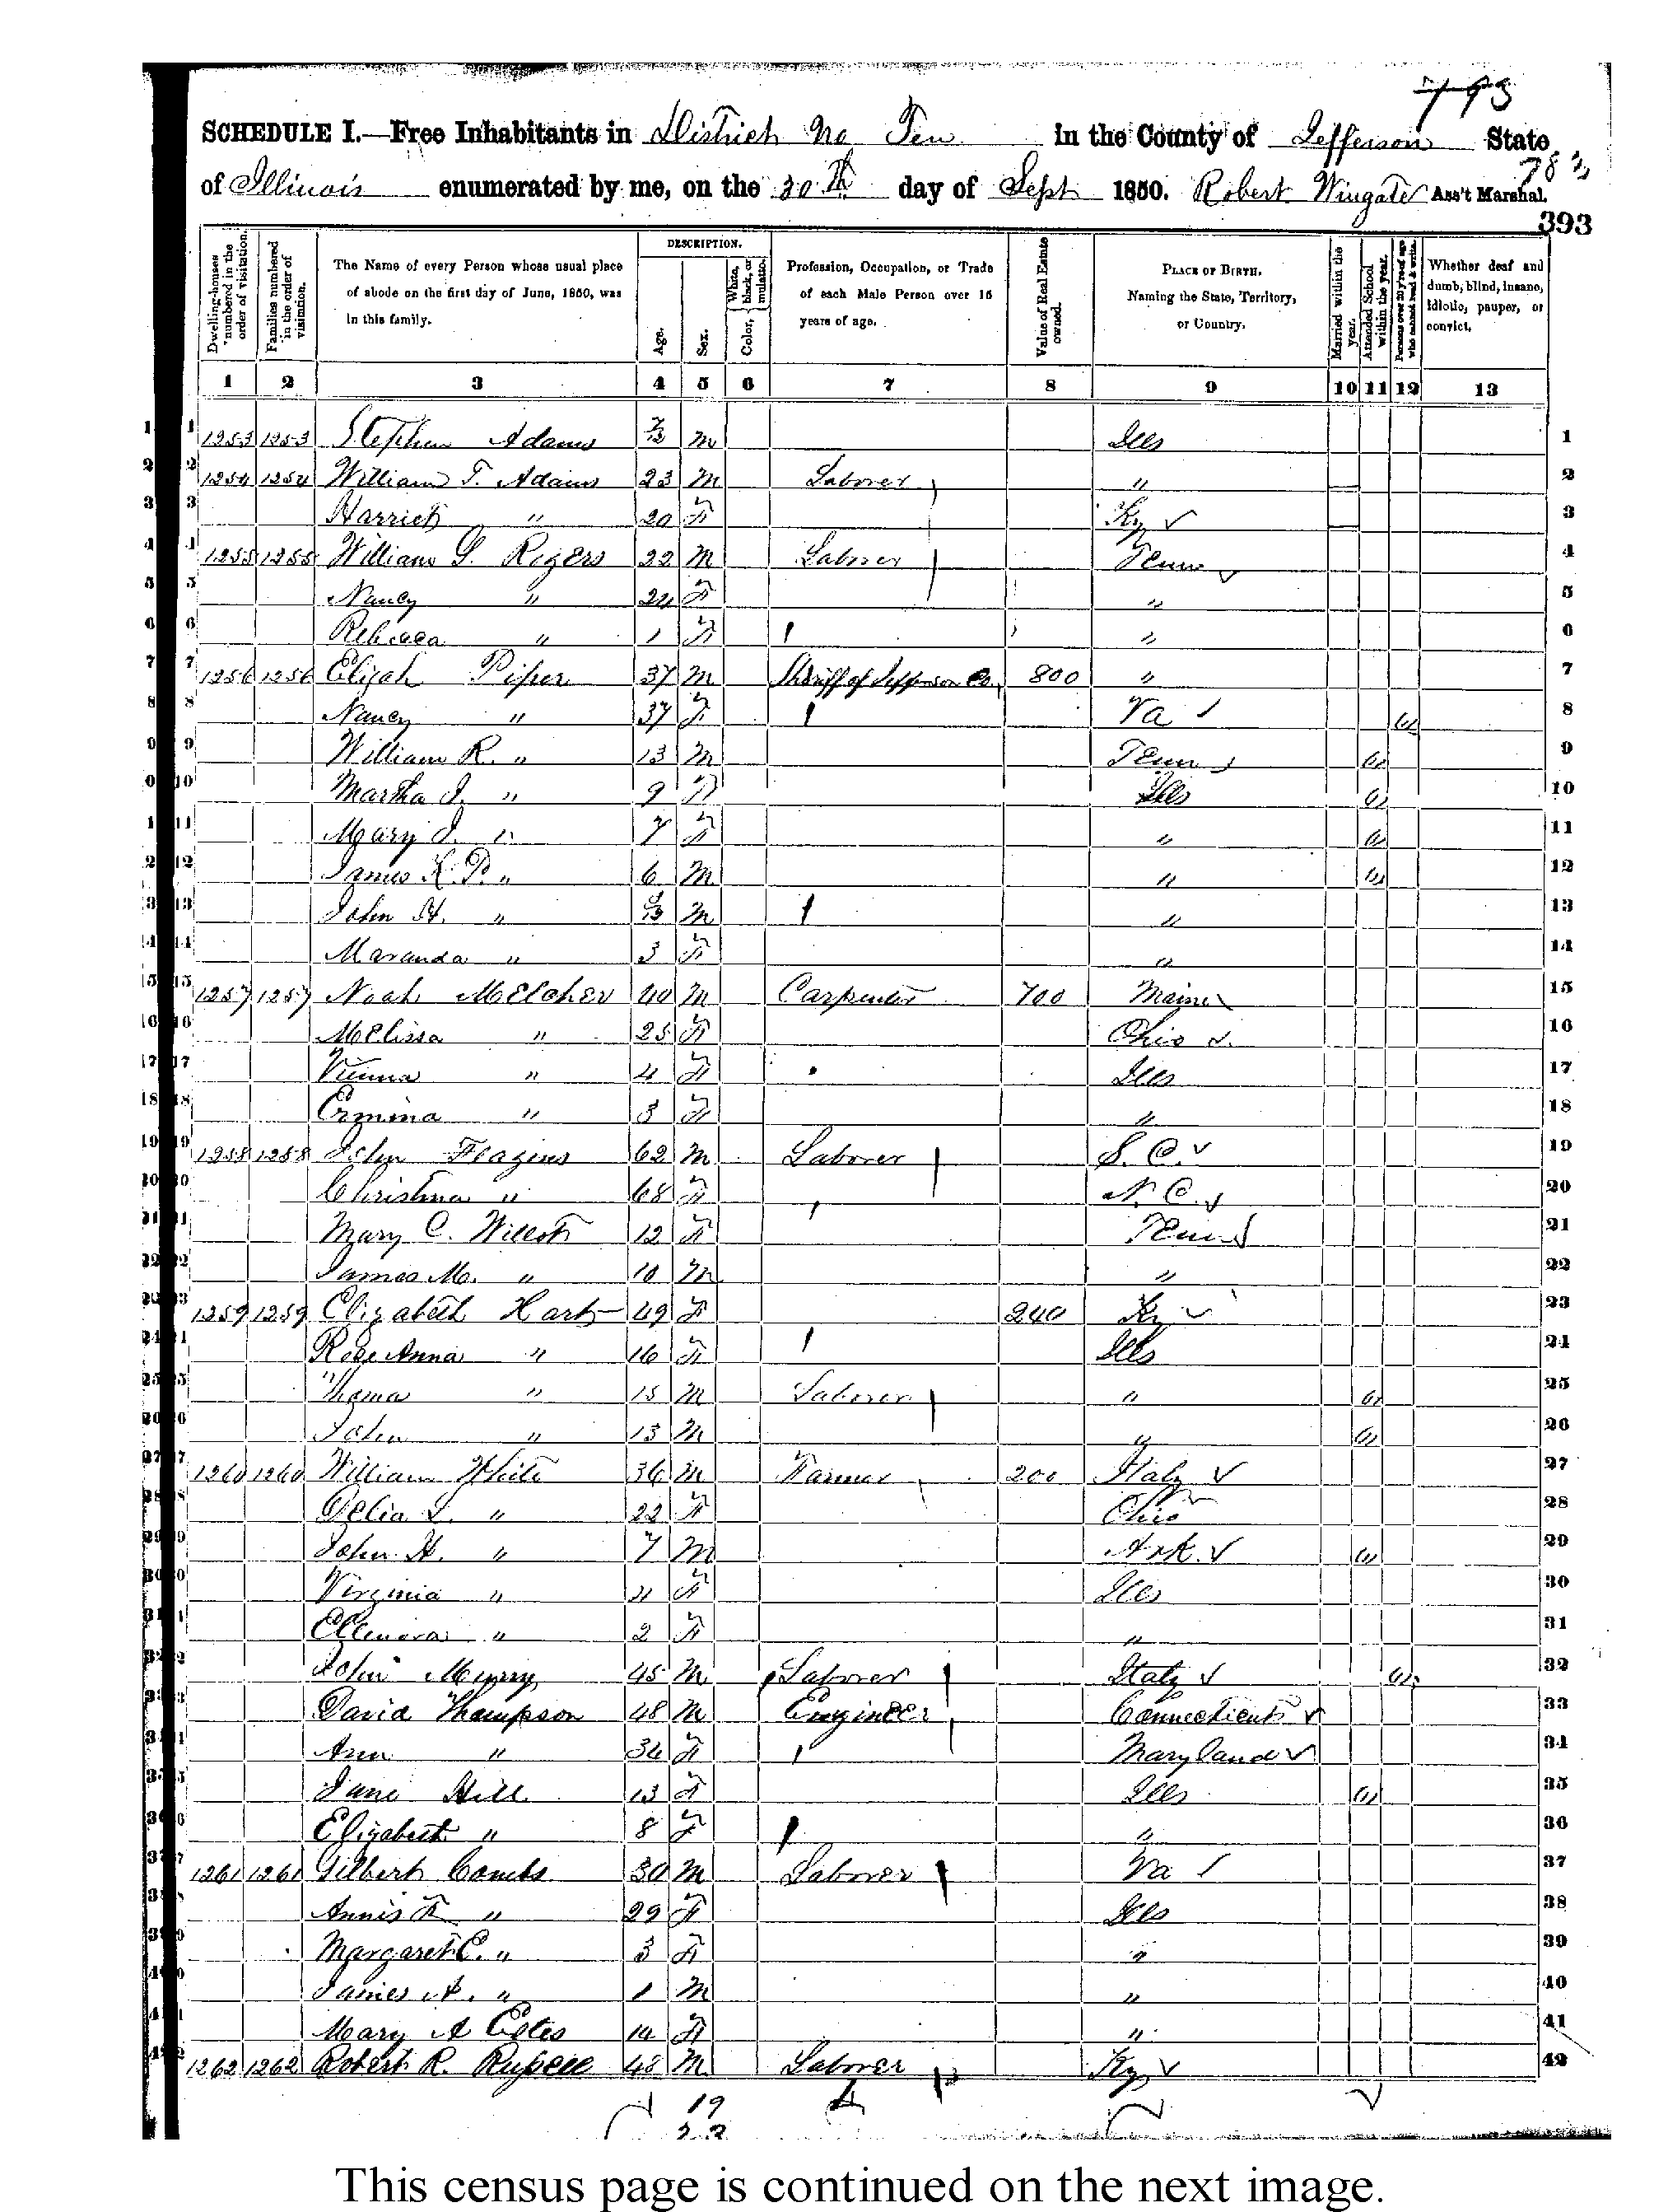 793
SCHEDULE I.—Free Inhabitants in District No Ten in the County of Jefferson State
of Illinois enumerated by me, on the 30th day of Sept 1850. Robert Wingate Ass't Marshal.
393
Dwelling-houses numbered in the order of visitation.
Families numbered in the order of visitation.
The Name of every Person whose usual place of abode on the first day of June, 1850, was in this family.
DESCRIPTION.
Age.
Sex.
Color, White, black, or mulatto.
Profession, Occupation, or Trade of each Male Person over 15 years of age.
Value of Real Estate owned.
PLACE OF BIRTH. Naming the State, Territory, or Country.
Married within the year.
Attended School within the year.
Persons over 20 y'rs of age who cannot read & write.
Whether deaf and dumb, blind, insane, idiotic, pauper, or convict.
1 2 3 4 5 6 7 8 9 10 11 12 13
1 1253 1253 Stephen Adams M Ills 1
2 1254 1254 William T. Adams 23 M Laborer " 2
3 Harriet " 20 F Ky 3
4 1255 1255 William S. Rigers 22 M Laborer Tenn 4
5 Nancy " 24 F " 5
6 Rebecca " 1 F " 6
7 1256 1256 Elijah Piper 37 M Sheriff of Jefferson Co. 800 " 7
8 Nancy " 37 F Va 8
9 William R. " 13 M Tenn 9
10 Martha J. " 9 F Ills 10
11 Mary J. " 7 F " 11
12 James K. P. " 6 M " 12
13 John H. " M " 13
14 Maranda " 3 F " 14
15 1257 1257 Noah Melcher 40 M Carpenter 700 Maine 15
16 Melissa " 25 F Ohio 16
17 Vienna " 4 F Ills 17
18 Ermina " 3 F " 18
19 1258 1258 John Flagins 62 M Laborer S. C. 19
20 Christina " 68 F N. C. 20
21 Mary C. 12 F Tenn 21
22 James M. " 10 M " 22
23 1259 1259 Elizabeth Hart 49 F 240 Ky 23
24 Rose Anna " 16 F Ills 24
25 Thomas " 15 M Laborer " 25
26 John " 13 M " 26
27 1260 1260 William White 36 M Farmer 200 Italy 27
28 Delia L. " 22 F Ohio 28
29 John H. " 7 M Ark. 29
30 Virginia " 4 F Ills 30
31 Ellenora " 2 F " 31
32 John 45 M Laborer Italy 32
33 David Thompson 48 M Engineer Connecticut 33
34 Ann " 34 F Maryland 34
35 Jane Hill 13 F Ills 35
36 Elizabeth " 8 F " 36
37 1261 1261 Gilbert Combs 30 M Laborer Va 37
38 Annis F " 29 F Ills 38
39 Margaret C. " 3 F " 39
40 James A. " 1 M " 40
41 Mary A Estes 14 F " 41
42 1262 1262 Robert R. Russell 48 M Laborer Ky 42
19
23
This census page is continued on the next image.